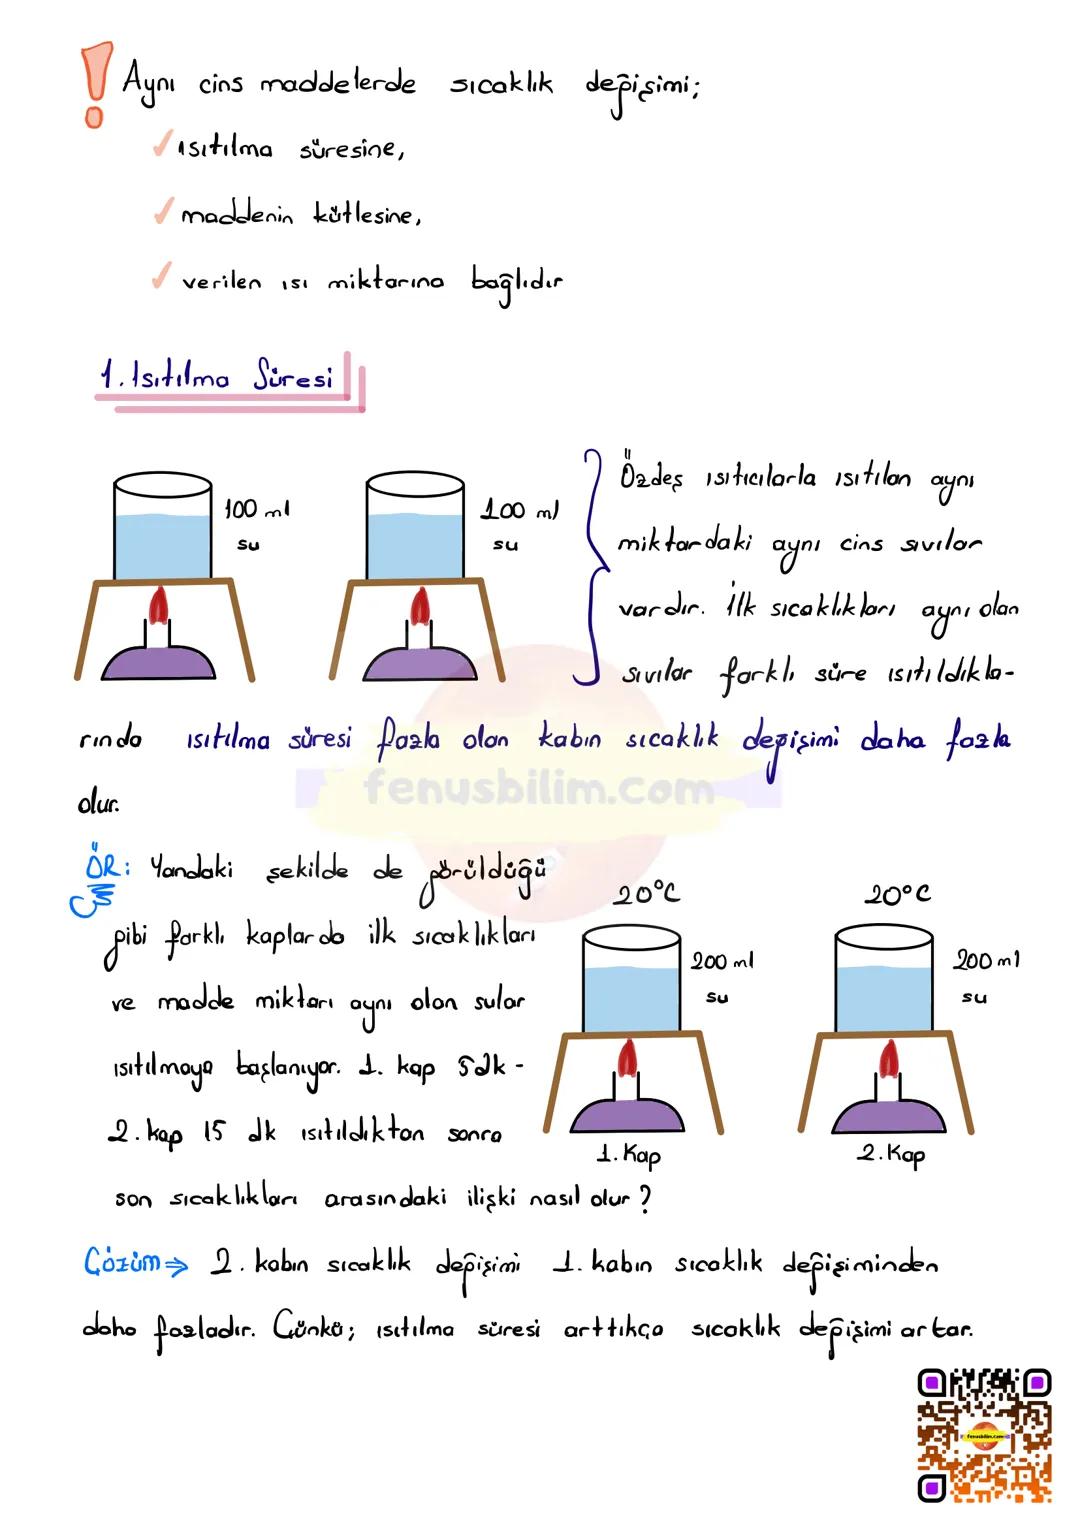 Aynı cins maddelerde sıcaklık değişimi;
ısıtılma süresine,
maddenin kütlesine,
verilen ısı miktarına bağlıdır
1. Isıtılma Süresi
100 ml
su
100 ml
su
Özdeş ısıtıcılarla ısıtılan aynı
miktardaki aynı cins sıvılar
vardır. İlk sıcaklıkları aynı olan
sıvılar farklı süre ısıtıldıkla-
rında ısıtılma süresi fazla olan kabın sıcaklık değişimi daha fazla
olur.
fenusbilim.com
ÖR: Yandaki şekilde de görüldüğü
gibi farklı kaplarda ilk sıcaklıkları
ve madde miktarı aynı olan sular
ısıtılmaya başlanıyor. 1. kap 5dk -
2. kap 15 dk ısıtıldıktan sonra
son sıcaklıkları arasındaki ilişki nasıl olur?
20°C
200 ml
su
1. Kap
20°C
200 ml
su
2. Kap
Çözüm⇒ 2. kabın sıcaklık değişimi 1. kabın sıcaklık değişiminden
daha fazladır. Çünkü; ısıtılma süresi arttıkça sıcaklık değişimi artar.
fenusbilim.com